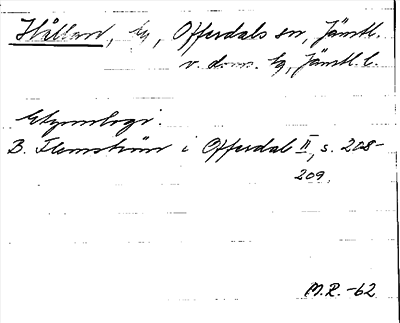 Hålland, by, Offerdals sn, Jämtl.
v. dom. tg, Jämtl. l.
Etymologi.
B. Flemström i Offerdal II, s. 208-
209.
M.R.-62